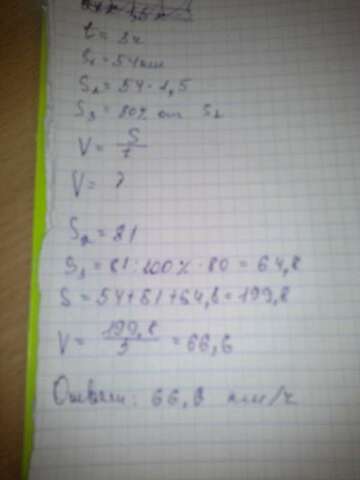 t = 3ч
S₁ = 54км
S₂ = 54 · 1,5
S₃ = 80% от S₂
V = S/t
V = ?
S₂ = 81
S₃ = 81 : 100% · 80 = 64,8
S = 54 + 81 + 64,8 = 199,8
V = 199,8/3 = 66,6
Ответ: 66,6 км/ч